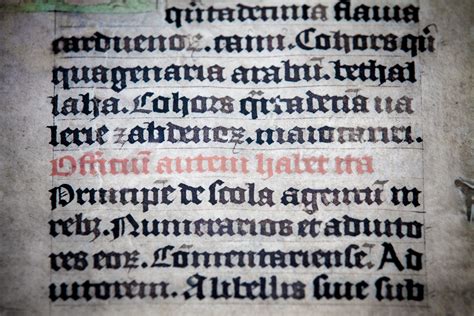 qͥ̃tadecima flauia
carduenoꝝ. caini. Cohors qͥ̃
quagenaria arabū. bethal
laha. Cohors qͥ̃tadecīa ua
lerie zabdenoꝝ. maiocariri.
Officiū autem habet ita
Principē de scola agentiū in
rebꝫ. Numerarios et adiuto
res eoꝝ. Cōmentariensē. Ad
iutorem. A libellis siue sub